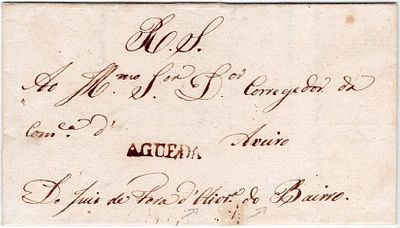 R. S.
Ao Il.mo Sr. Dor Corregedor da
Com.ca d'
Aveiro
AGUEDA
Do Juis de Fora d'Olivr.a do Bairro.